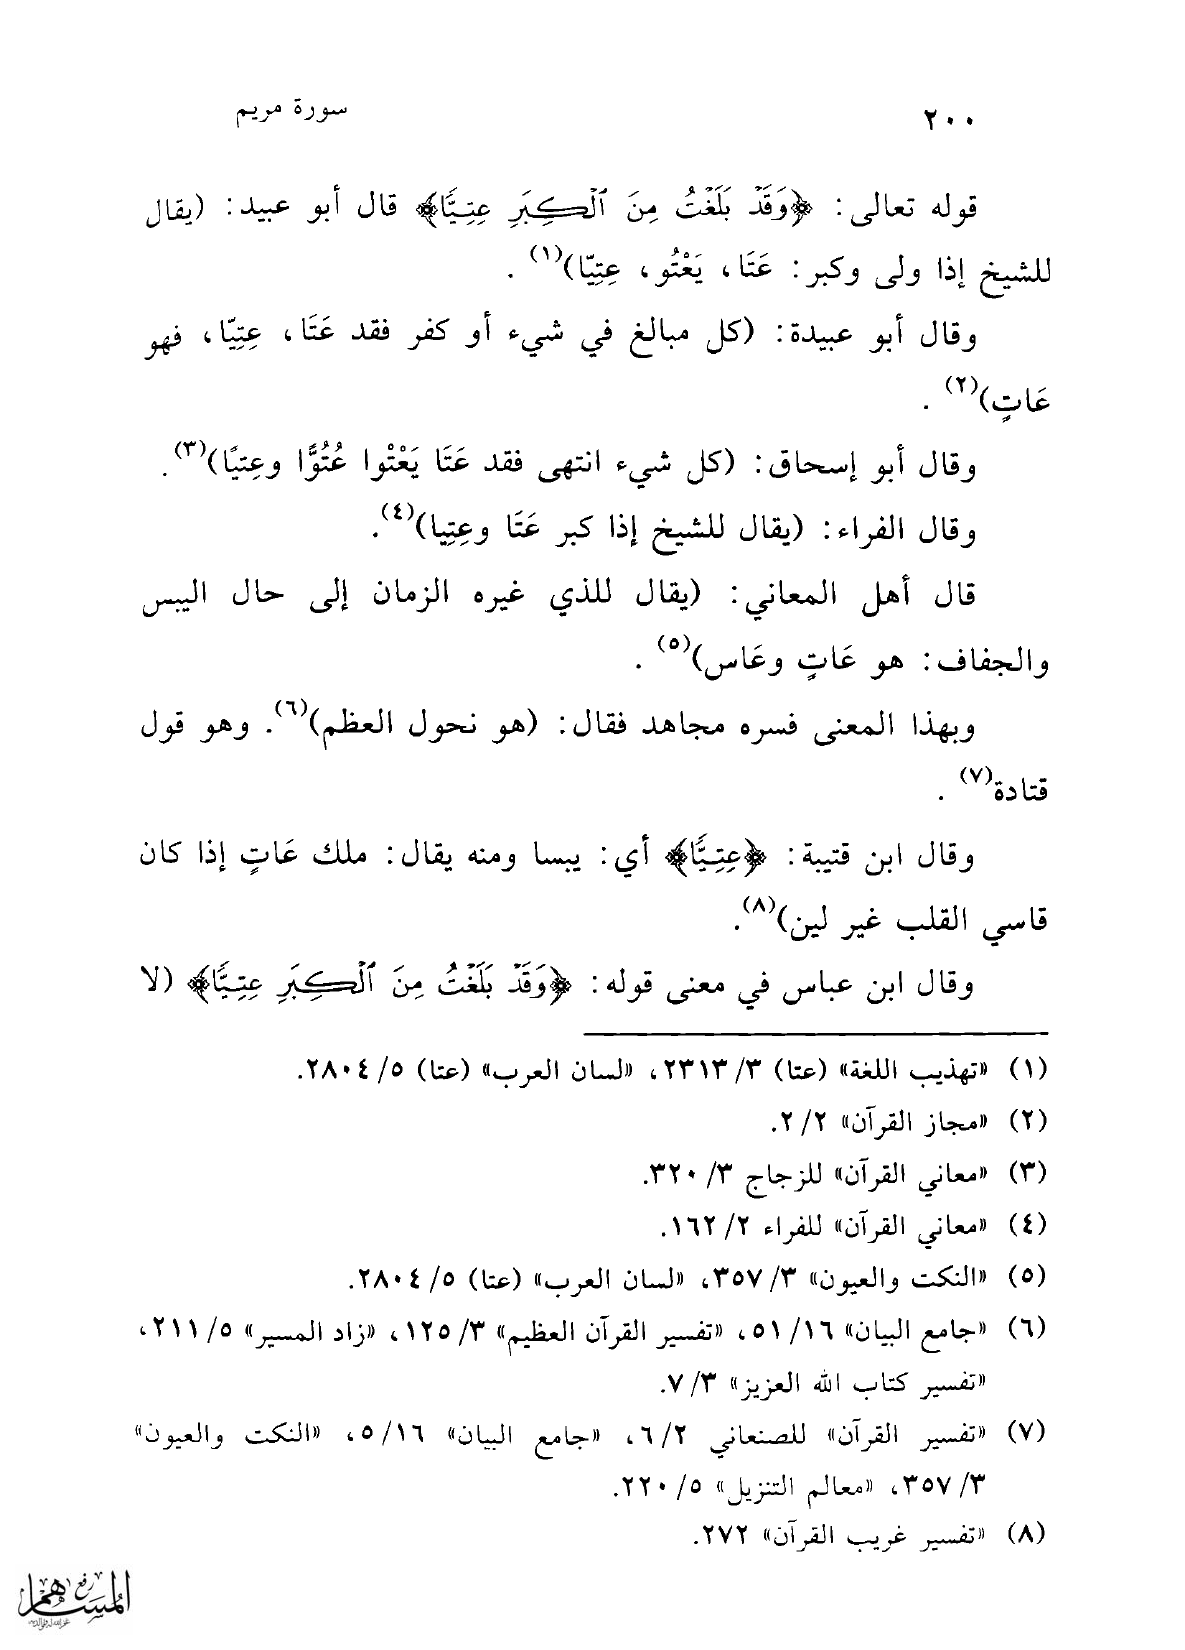 ٢٠٠ سورة مريم
قوله تعالى: ﴿وَقَدْ بَلَغْتُ مِنَ ٱلْكِبَرِ عِتِيًّا﴾ قال أبو عبيد: (يقال
للشيخ إذا ولى وكبر: عَتَا، يَعْتُو، عِتِيّا)(١) .
وقال أبو عبيدة: (كل مبالغ في شيء أو كفر فقد عَتَا، عِتِيّا، فهو
عَاتٍ)(٢) .
وقال أبو إسحاق: (كل شيء انتهى فقد عَتَا يَعْتْوا عُتُوًّا وعِتيًا)(٣).
وقال الفراء: (يقال للشيخ إذا كبر عَتَا وعِتِيا)(٤).
قال أهل المعاني: (يقال للذي غيره الزمان إلى حال اليبس
والجفاف: هو عَاتٍ وعَاس)(٥) .
وبهذا المعنى فسره مجاهد فقال: (هو نحول العظم)(٦). وهو قول
قتادة(٧) .
وقال ابن قتيبة: ﴿عِتِيًّا﴾ أي: يبسا ومنه يقال: ملك عَاتٍ إذا كان
قاسي القلب غير لين)(٨).
وقال ابن عباس في معنى قوله: ﴿وَقَدْ بَلَغْتُ مِنَ ٱلْكِبَرِ عِتِيًّا﴾ (لا
(١) «تهذيب اللغة» (عتا) ٣/ ٢٣١٣، «لسان العرب» (عتا) ٥/ ٢٨٠٤.
(٢) «مجاز القرآن» ٢/ ٢.
(٣) «معاني القرآن» للزجاج ٣/ ٣٢٠.
(٤) «معاني القرآن» للفراء ٢/ ١٦٢.
(٥) «النكت والعيون» ٣/ ٣٥٧، «لسان العرب» (عتا) ٥/ ٢٨٠٤.
(٦) «جامع البيان» ١٦/ ٥١، «تفسير القرآن العظيم» ٣/ ١٢٥، «زاد المسير» ٥/ ٢١١،
«تفسير كتاب الله العزيز» ٣/ ٧.
(٧) «تفسير القرآن» للصنعاني ٢/ ٦، «جامع البيان» ١٦/ ٥، «النكت والعيون»
٣/ ٣٥٧، «معالم التنزيل» ٥/ ٢٢٠.
(٨) «تفسير غريب القرآن» ٢٧٢.